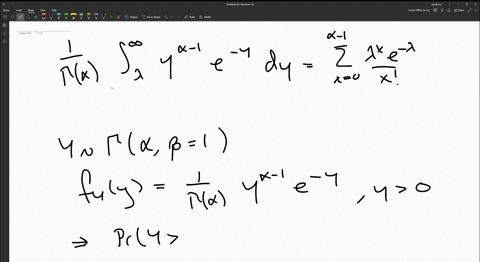 1/Γ(α) ∫_λ^∞ y^{α-1} e^{-y} dy = Σ_{x=0}^{α-1} λ^x e^{-λ} / x!
Y ~ Γ(α, β=1)
f_Y(y) = 1/Γ(α) y^{α-1} e^{-y} , y > 0
⇒ Pr(Y >